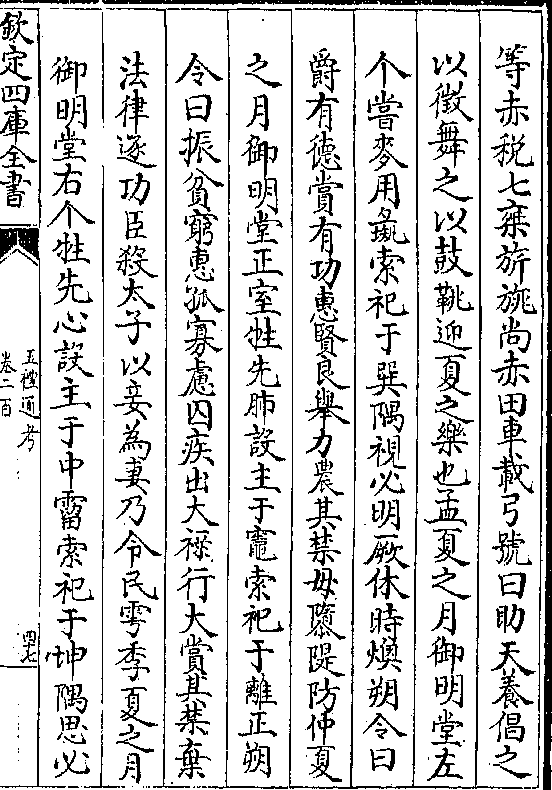 等赤税七乘旂旐尚赤田車載弓號曰助天養倡之
以徵舞之以鼓鞉迎夏之樂也孟夏之月御明堂左
个嘗麥用彘索祀于巽隅視必明厥休時燠朔令曰
爵有徳賞有功惠賢良舉力農其禁毋隳隄防仲夏
之月御明堂正室牲先肺設主于竈索祀于離正朔
令曰振貧窮惠孤寡慮囚疾出大祿行大賞其禁棄
法律逐功臣殺太子以妾為妻乃令民雩季夏之月
御明堂右个牲先心設主于中霤索祀于坤隅思必
欽定四庫全書
五禮通考
卷二百
四七